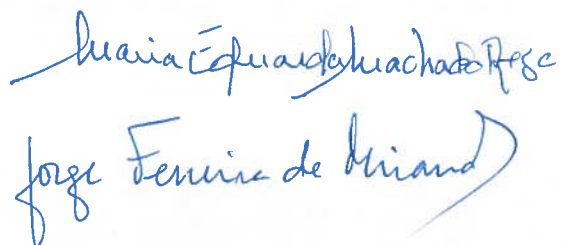 Maria Eduarda Machado Rego
Jorge Ferreira de Miranda